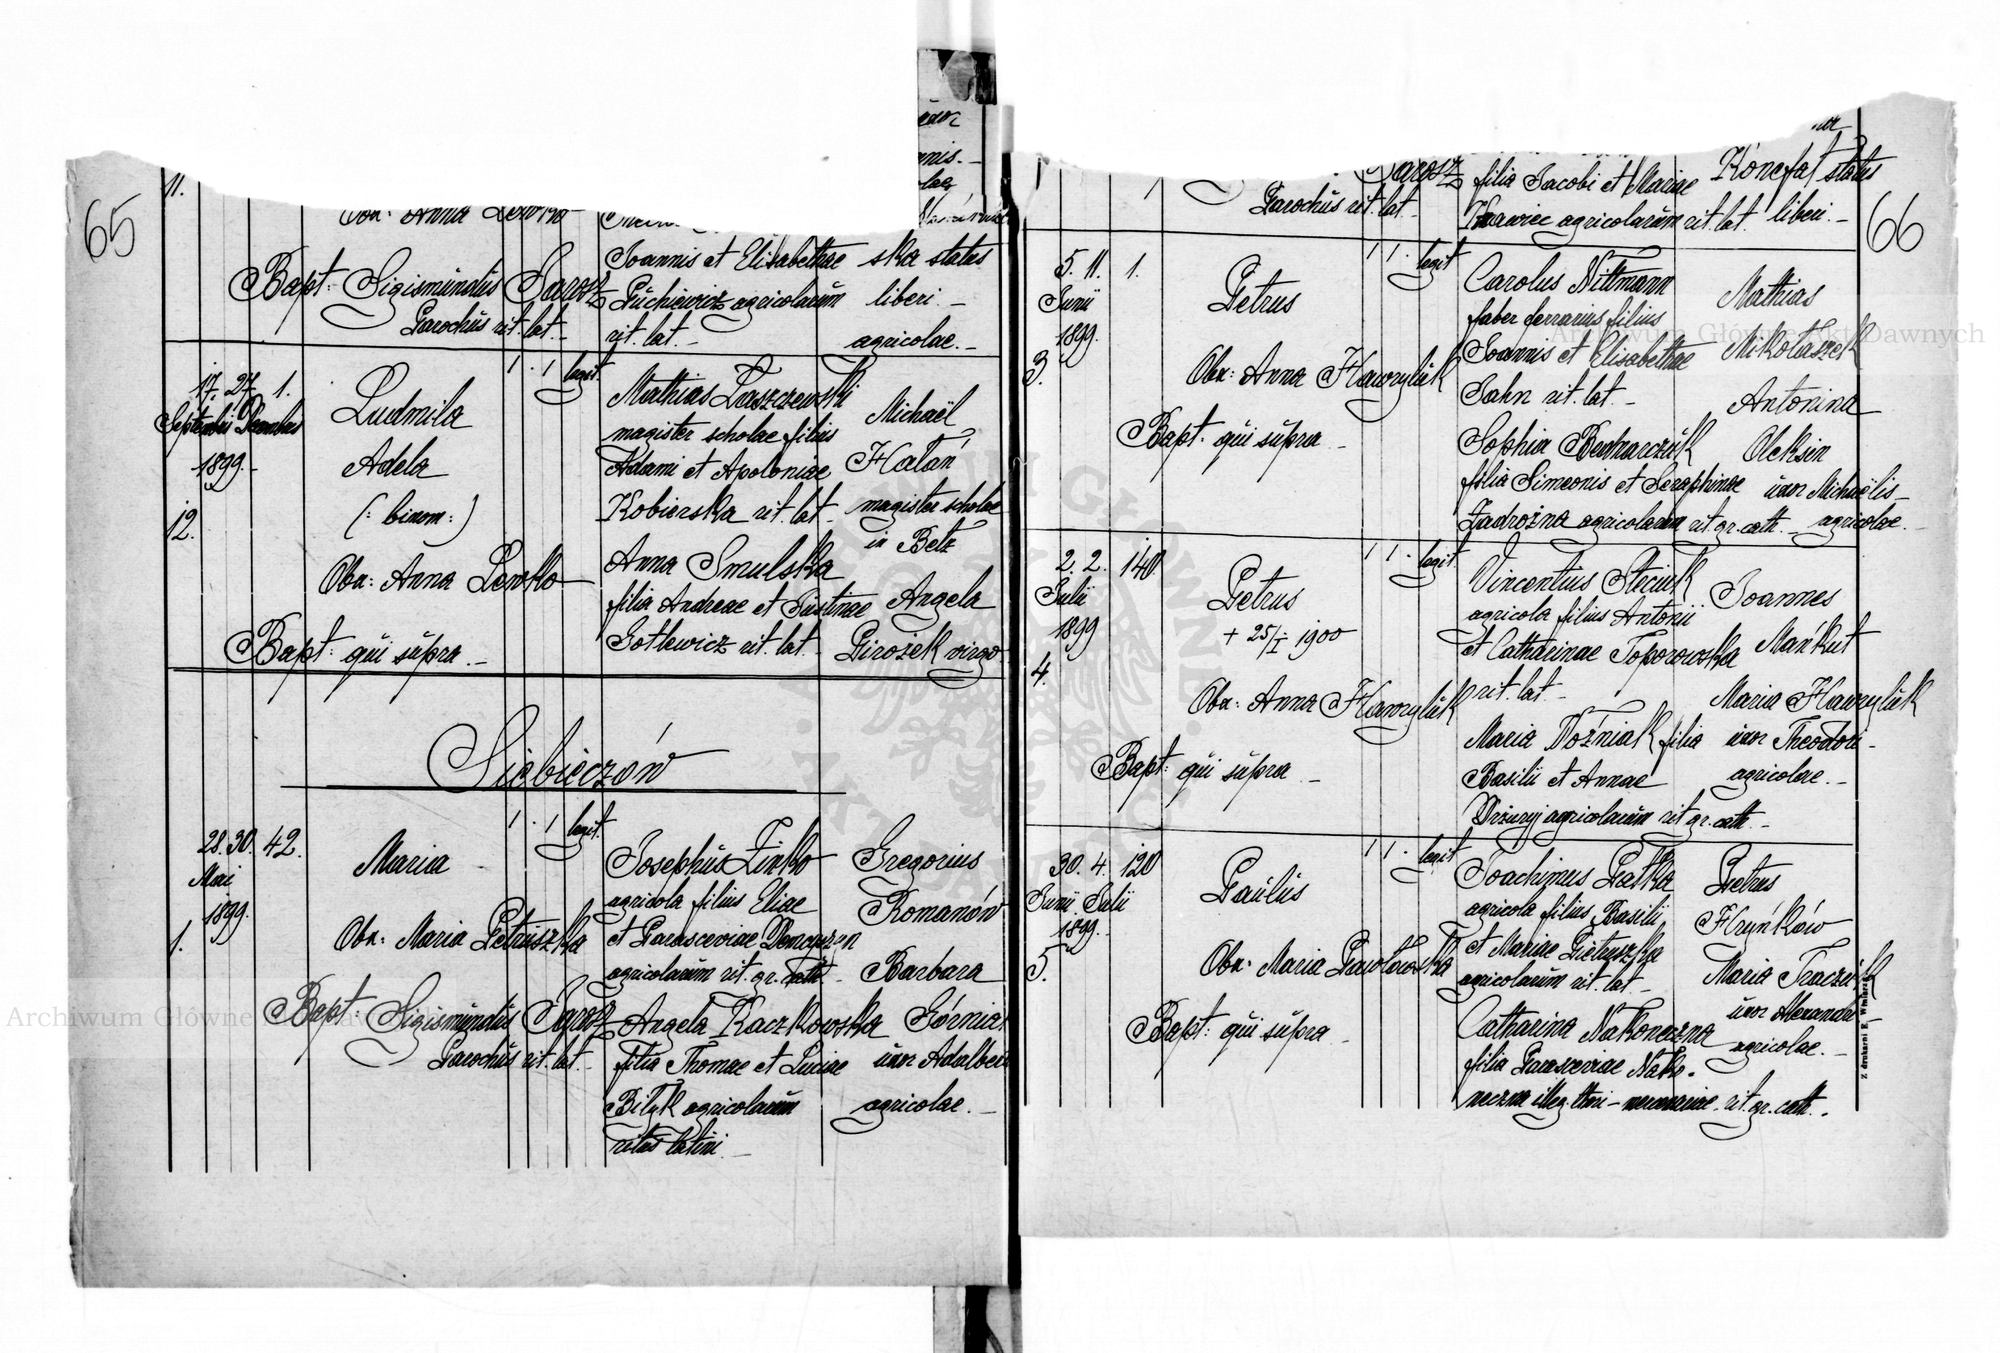 65
11.
Obx: Anna Lewko
Joannis et Elisabethae
ska status
Bapt: Sigismundus Jarosz
Puchiewicz agricolarum
liberi. –
Parochus rit. lat. –
rit. lat. –
agricolae. –
17. 27. 1.
1 · 1 legit.
Septembris Decembris
1899. –
12.
Ludmila
Adela
(: binom :)
Obx: Anna Lewko
Bapt: qui supra. –
Mathias Laszczewski
magister scholae filius
Adami et Apoloniae
Kobierska rit. lat. –
Anna Smulska
filia Andreae et Justinae
Gotlewicz rit. lat. –
Michaël
Hałań
magister scholae
in Bełz
Angela
Pirożek virgo
Siebieczów
28. 30. 42.
1 · 1 legit.
Mai
1899.
1.
Maria
Obx: Maria Petruszka
Bapt: Sigismundus Jarosz
Parochus rit. lat. –
Josephus Zinko
agricola filius Eliae
et Parasceviae
agricolarum rit. gr. cath. –
Angela Kaczkowska
filia Thomae et Luciae
Bilyk agricolarum
ritus latini. –
Gregorius
Romanów
Barbara
Górniak
uxor Adalberti
agricolae. –
66
1
Jarosz
Parochus rit. lat. –
filia Jacobi et Mariae
Krawiec agricolarum rit. lat.
Koncfał status
liberi. –
5. 11. 1.
1 1 · legit
Junii
1899.
3.
Petrus
Obx: Anna Hawryluk
Bapt: qui supra. –
Carolus Nittmann
faber ferrarius filius
Joannis et Elisabethae
Jahn rit. lat. –
Sophia Bednarczuk
filia Simeonis et Seraphinae
Zadrożna agricolarum rit. gr. cath. –
Mathias
Mikołaszek
Antonina
Oleksin
uxor Michaëlis –
agricolae. –
2. 2. 140
1 1 · legit
Julii
1899
4.
Petrus
+ 25/I 1900
Obx: Anna Hawryluk
Bapt: qui supra. –
Vincentius Steciuk
agricola filius Antonii
et Catharinae Toporowska
rit. lat. –
Maria Woźniak filia
Basilii et Annae
agricolarum rit. gr. cath. –
Joannes
Mańkut
Maria Hawryluk
uxor Theodori –
agricolae. –
30. 4. 120
1 1 · legit
Junii Julii
1899. –
5.
Paulus
Obx: Maria Pawłowska
Bapt: qui supra. –
Joachimus Pałka
agricola filius Basilii
et Mariae Pietruszka
agricolarum rit. lat. –
Catharina Nakoneczna
filia Parasceviae Nako-
neczna illeg. thori – rit. gr. cath. –
Petrus
Hryńków
Maria Traczuk
uxor Alexandri –
agricolae. –
Z drukarni E. Winiarza
Archiwum Główne Akt Dawnych
Archiwum Główne Akt Dawnych